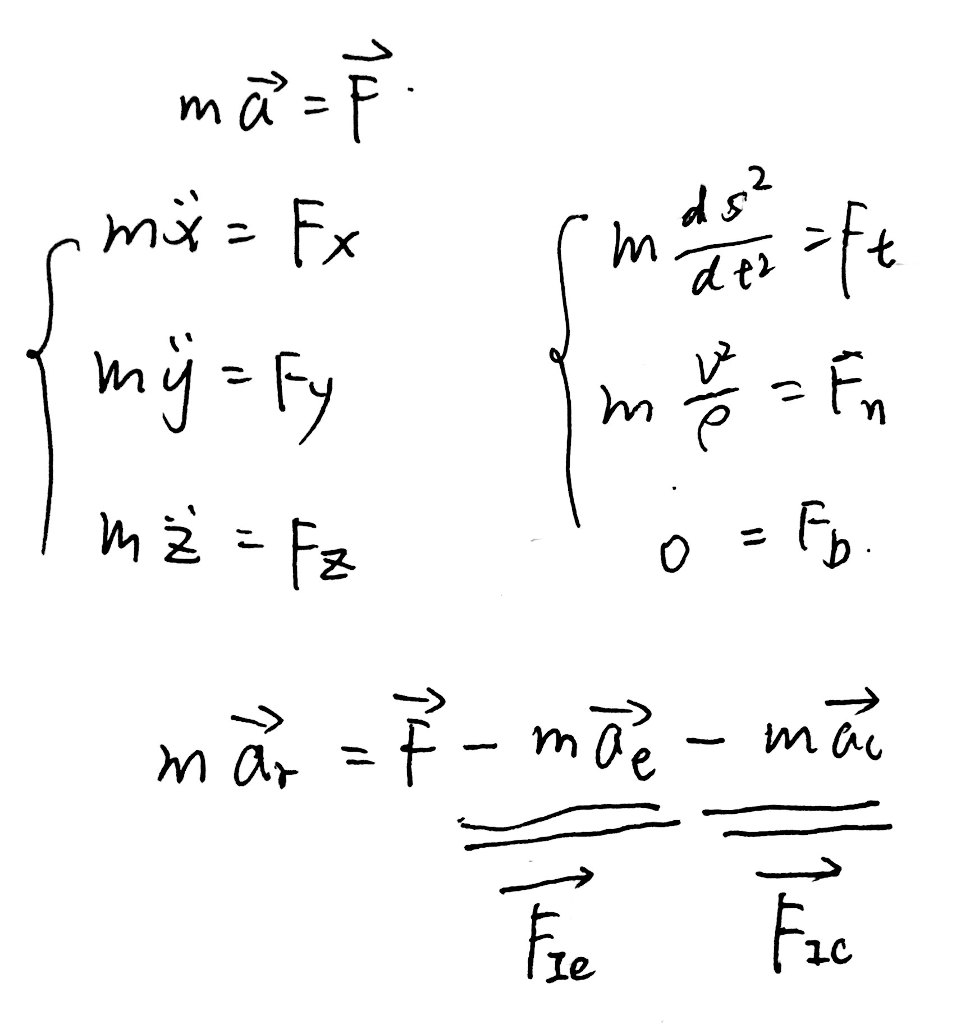 m\vec{a} = \vec{F}.
m\ddot{x} = F_x
m\ddot{y} = F_y
m\ddot{z} = F_z
m\frac{ds^2}{dt^2} = F_t
m\frac{v^2}{\rho} = F_n
0 = F_b.
m\vec{a_r} = \vec{F} - m\vec{a_e} - m\vec{a_c}
\vec{F_{Ie}} \vec{F_{Ic}}